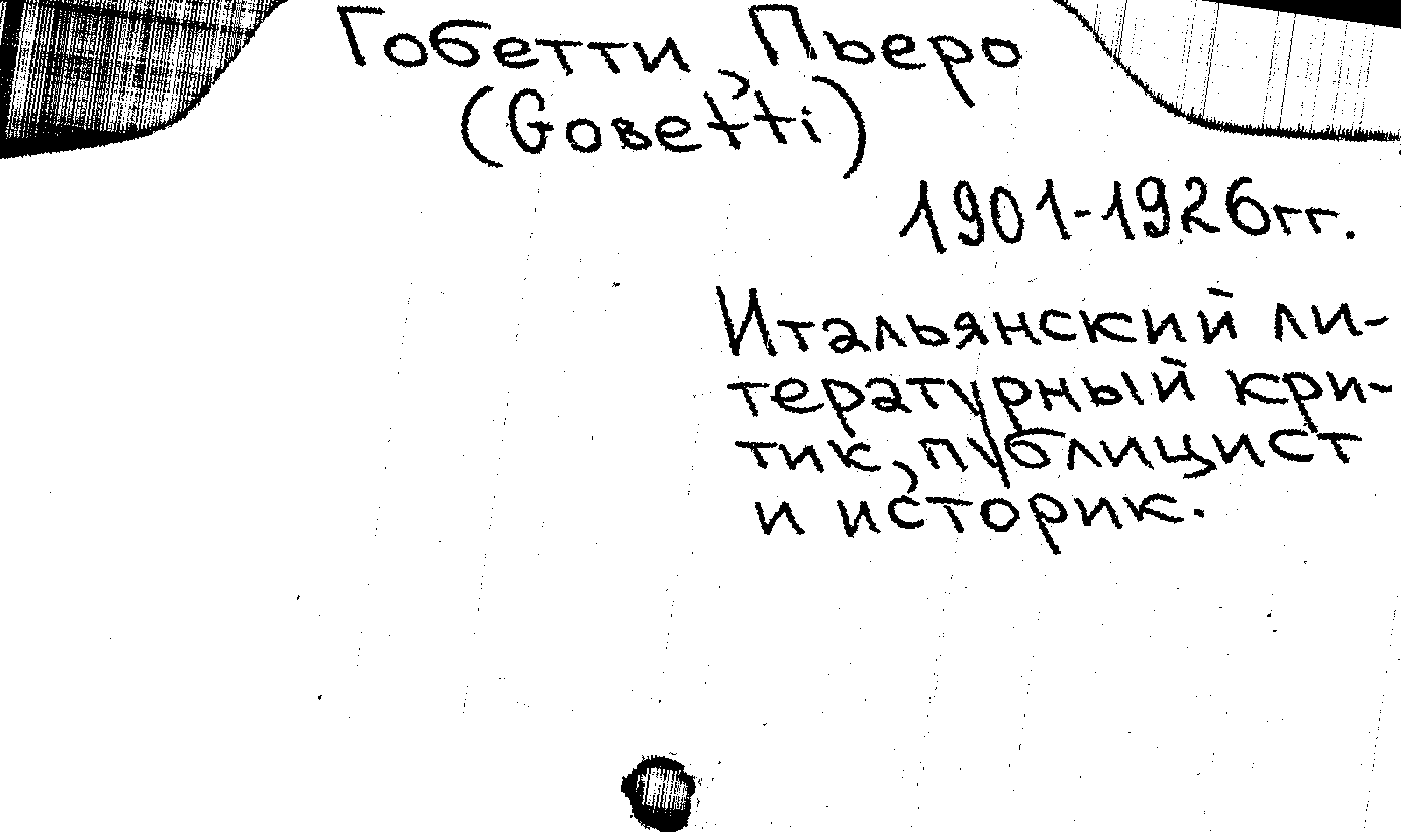 Гобетти, Пьеро
(Gовetti)
1901-1926гг.
Итальянский ли-
тературный кри-
тик, публицист
и историк.